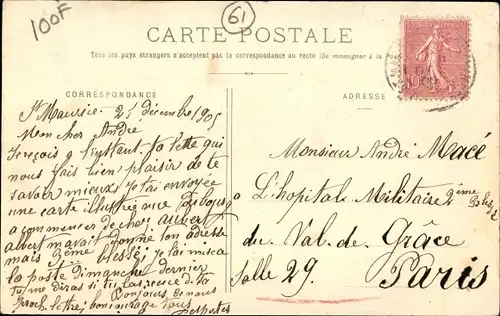 100F
61
CARTE POSTALE
Tous les pays étrangers n'acceptent pas la correspondance au recto (Se renseigner à la Poste)
CORRESPONDANCE
ADRESSE
St Maurice. 21 décembre 1905
Mon cher André
Je reçois à l'instant ta lettre qui
nous fait bien plaisir de te
savoir mieux. Je t'ai envoyée
une carte illustrée
a commencer de chez aubert
albert m'avait donné ton adresse
mais 2ème blessé; Je t'ai mis a
la poste Dimanche dernier
tu me diras si tu las reçue dans ta
proch. lettre; bon courage tous
Bonjours de nous
Desportes
Monsieur André Macé
L'hopital Militaire 2ème Blessé
du Val de Grâce
Salle 29. Paris